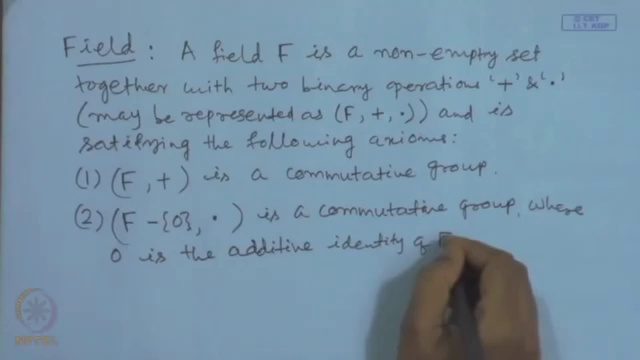 Field : A field F is a non-empty set
together with two binary operations '+' & '.'
(may be represented as (F, +, .)) and is
satisfying the following axioms:
(1) (F, +) is a commutative group.
(2) (F - {0}, .) is a commutative group, where
0 is the additive identity of F
© CET
I.I.T. KGP
NPTEL